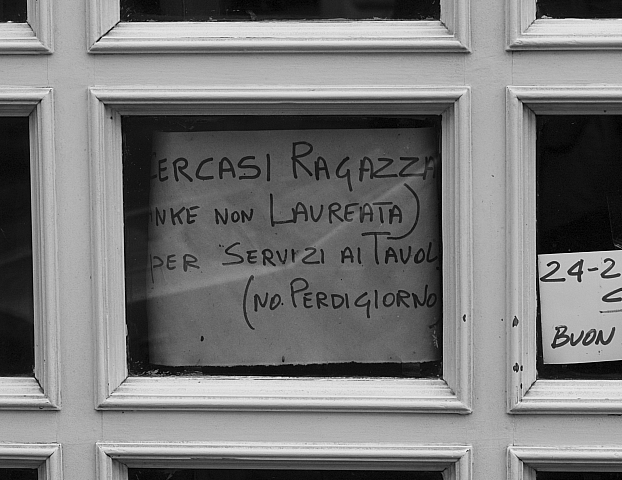 CERCASI RAGAZZA
ANKE NON LAUREATA)
PER SERVIZI AI TAVOL
(NO. PERDIGIORNO
24-2
BUON